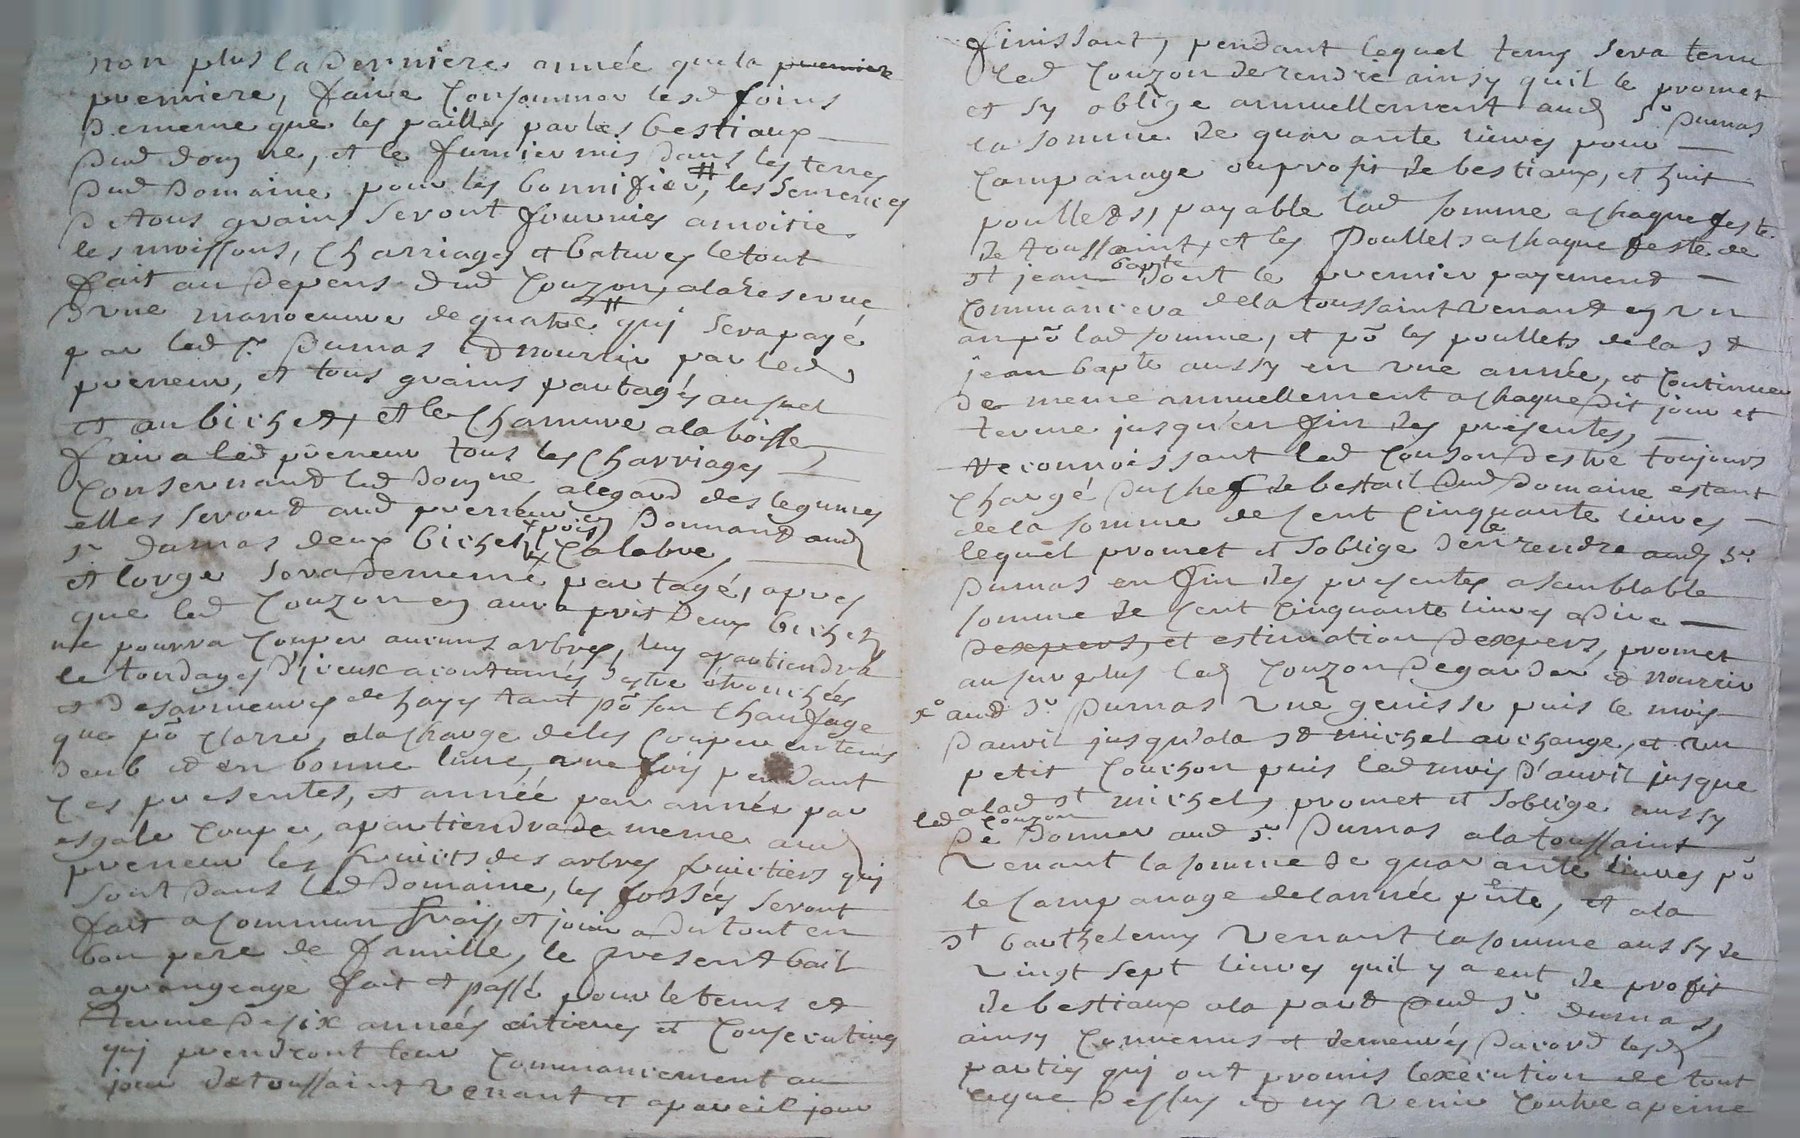 non plus la derniere année que la premiere
premiere, faire Consommer lesd foins
dememe que les pailles par les bestiaux
dud domne, et le fumier mis dans les terres
dud Domaine pour les bonnifier, # les semences
de tous grains seront fournies a moitie
les moissons, Charriages et batures le tout
fait au depens dud Couzon, ala reserve
d'une manoeuvre de quatre # qui sera payé
par led sr. Dumas et nourrir par led
preneur, et tous grains partagés au
et au bichet, et le Chanvre ala
faira led preneur tous les Charriages
Consernand led domne, alegard des legumes
elles seront aud preneur en Donnand aud
sr. dumas deux bichets pois
et lorge sera dememe partagé, apres
que led Couzon en aura pris Deux bichets
ne pourra Couper aucuns arbres, luy apartiendra
le tondages d'jceux acoutumés d'estre ébranchés
et desarmeures de hayes tant po son Chaufage
que po Clorre, ala charge deles Couper en tems
deub et en bonne lune, une fois pendant
Ces presentes, et année par année par
esgale Coupe, apartiendra de meme aud
preneur les fruicts des arbres fruictiers qui
sont dans led Domaine, les fossés seront
fait a Commun frais, et jouira du tout en
bon pere de famille, le present bail
agrangeage fait et passé pour le tems et
terme de six années entieres et Consecutives
qui prendront leur Commancement au
jour de toussaint venant et apareil jour
finissant, pendant lequel tems sera tenu
led Couzon de rendre ainsy quil le promet
et sy oblige annuellement aud sr. Dumas
la somme de quarante livres pour
Campanage ou profit de bestiaux, et huit
poullets, payable lad somme achaque feste
de toussaint, et les Poullets achaque feste de
st jean bapte dont le premier payement
Commancera dela toussaint venant en un
an po lad somme, et po les poullets dela st
jean bapte aussy en une année, et Continuer
de meme annuellement achaque dit jour et
terme jusqu'en fin des presentes,
Reconnoissant led Couson d'estre toujours
Chargé du chef de bestail dud Domaine estant
dela somme de Cent Cinquante livres
lequel promet et soblige d'en le rendre aud sr.
Dumas en fin des presentes a semblable
somme de Cent Cinquante livres adire
dexpers, et estimation dexpers, promet
au surplus led Couzon de garder et nourrir
aud sr. Dumas une genisse puis le mois
d'avril jusqu'ala st michel archange, et un
petit Couchon puis led mois d'avril jusque
alad st michel, promet et soblige aussy
led Couzon
De Donner aud sr. Dumas ala toussaint
venant la somme de quarante livres po
le Campanage de lannée pnte, et ala
st barthelemy venant la somme aussy de
vingt sept livres quil y a eut de profit
de bestiaux ala part dud sr. dumas,
ainsy Convenus et demeurés dacord lesd
parties qui ont promis lexécution de tout
ceque dessus et ny venir Contre apeine